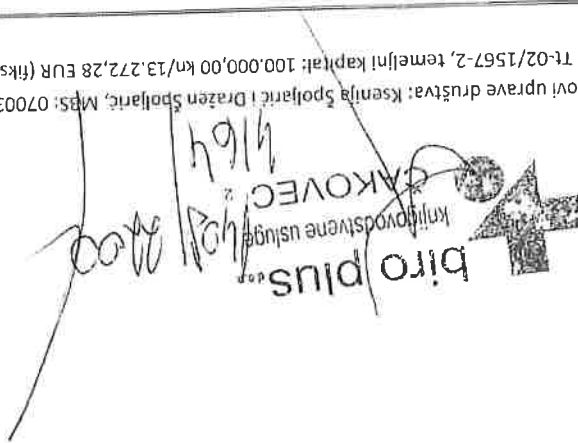 biro plus d.o.o.
knjigovodstvene usluge
ČAKOVEC 2
4164
2200
ovi uprave društva: Ksenija Špoljarić i Dražen Špoljarić, MBS: 07003
Tt-02/1567-2, temeljni kapital: 100.000,00 kn/13.272,28 EUR (fiks